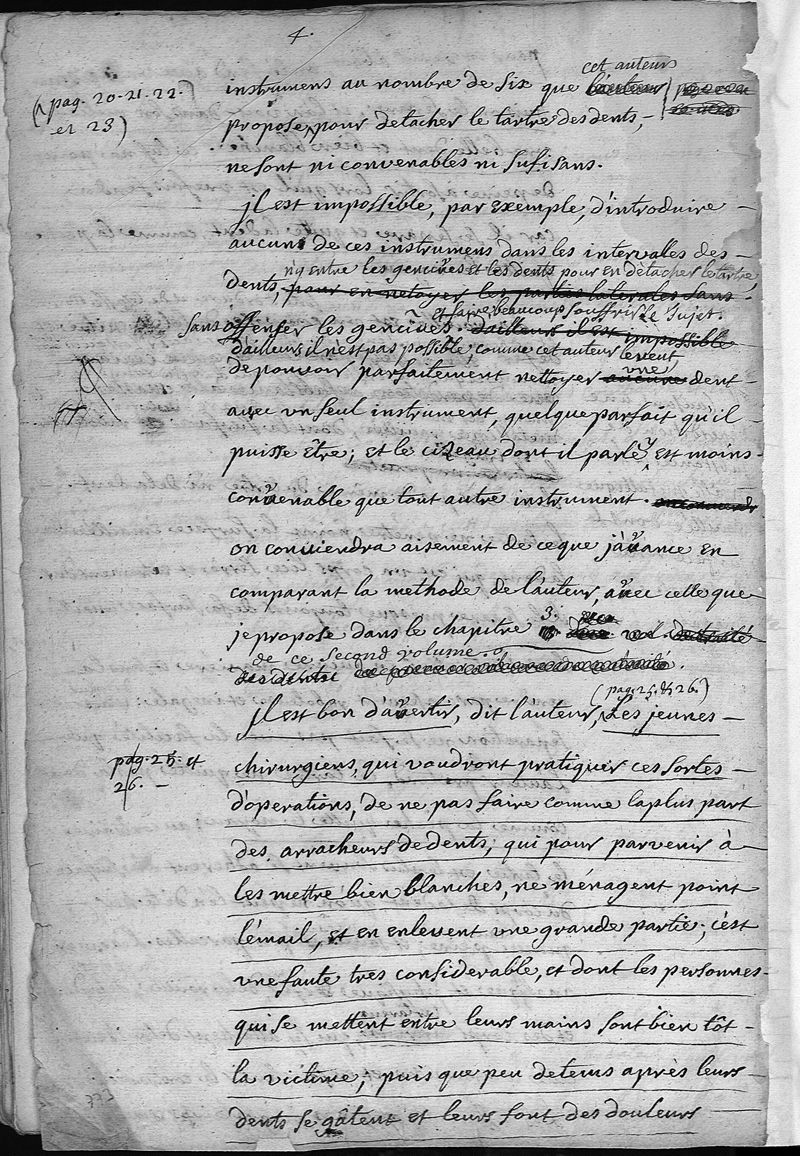 4.
(pag. 20-21-22.
et 23)
cet auteur
instrumens au nombre de six que l'auteur
propose, pour detacher le tartre des dents,
ne sont ni convenables ni sufisans.
jl est impossible, par exemple, d'introduire
aucuns de ces instrumens dans les intervalles des
ny entre les gencives et les dents pour en détacher le tartre
dents, pour en netoyer les parties laterales sans
et faire beaucoup souffrir le sujet.
sans offenser les gencives. d'ailleurs il est impossible
d'ailleurs il n'est pas possible, comme cet auteur le veut
de pouvoir parfaitement nettoyer aucune dent
une
avec un seul instrument, quelque parfait qu'il
puisse être; et le cizeau dont il parle, est moins
convenable que tout autre instrument.
on conviendra aisement de ce que j'avance en
comparant la methode de l'auteur, avec celle que
3.
je propose dans le chapitre
de ce second volume.
(pag. 25. & 26.)
jl est bon d'avertir, dit l'auteur, Les jeunes
pag. 25. et
26.
chirurgiens, qui voudront pratiquer ces sortes
d'operations, de ne pas faire comme la plus part
des arracheurs de dents; qui pour parvenir à
les mettre bien blanches, ne ménagent point
l'émail, et en enlevent une grande partie; c'est
une faute tres considerable, et dont les personnes
qui se mettent entre leurs mains sont bien tôt
la victime, puis que peu de tems après leurs
dents se gâtent et leurs font des douleurs